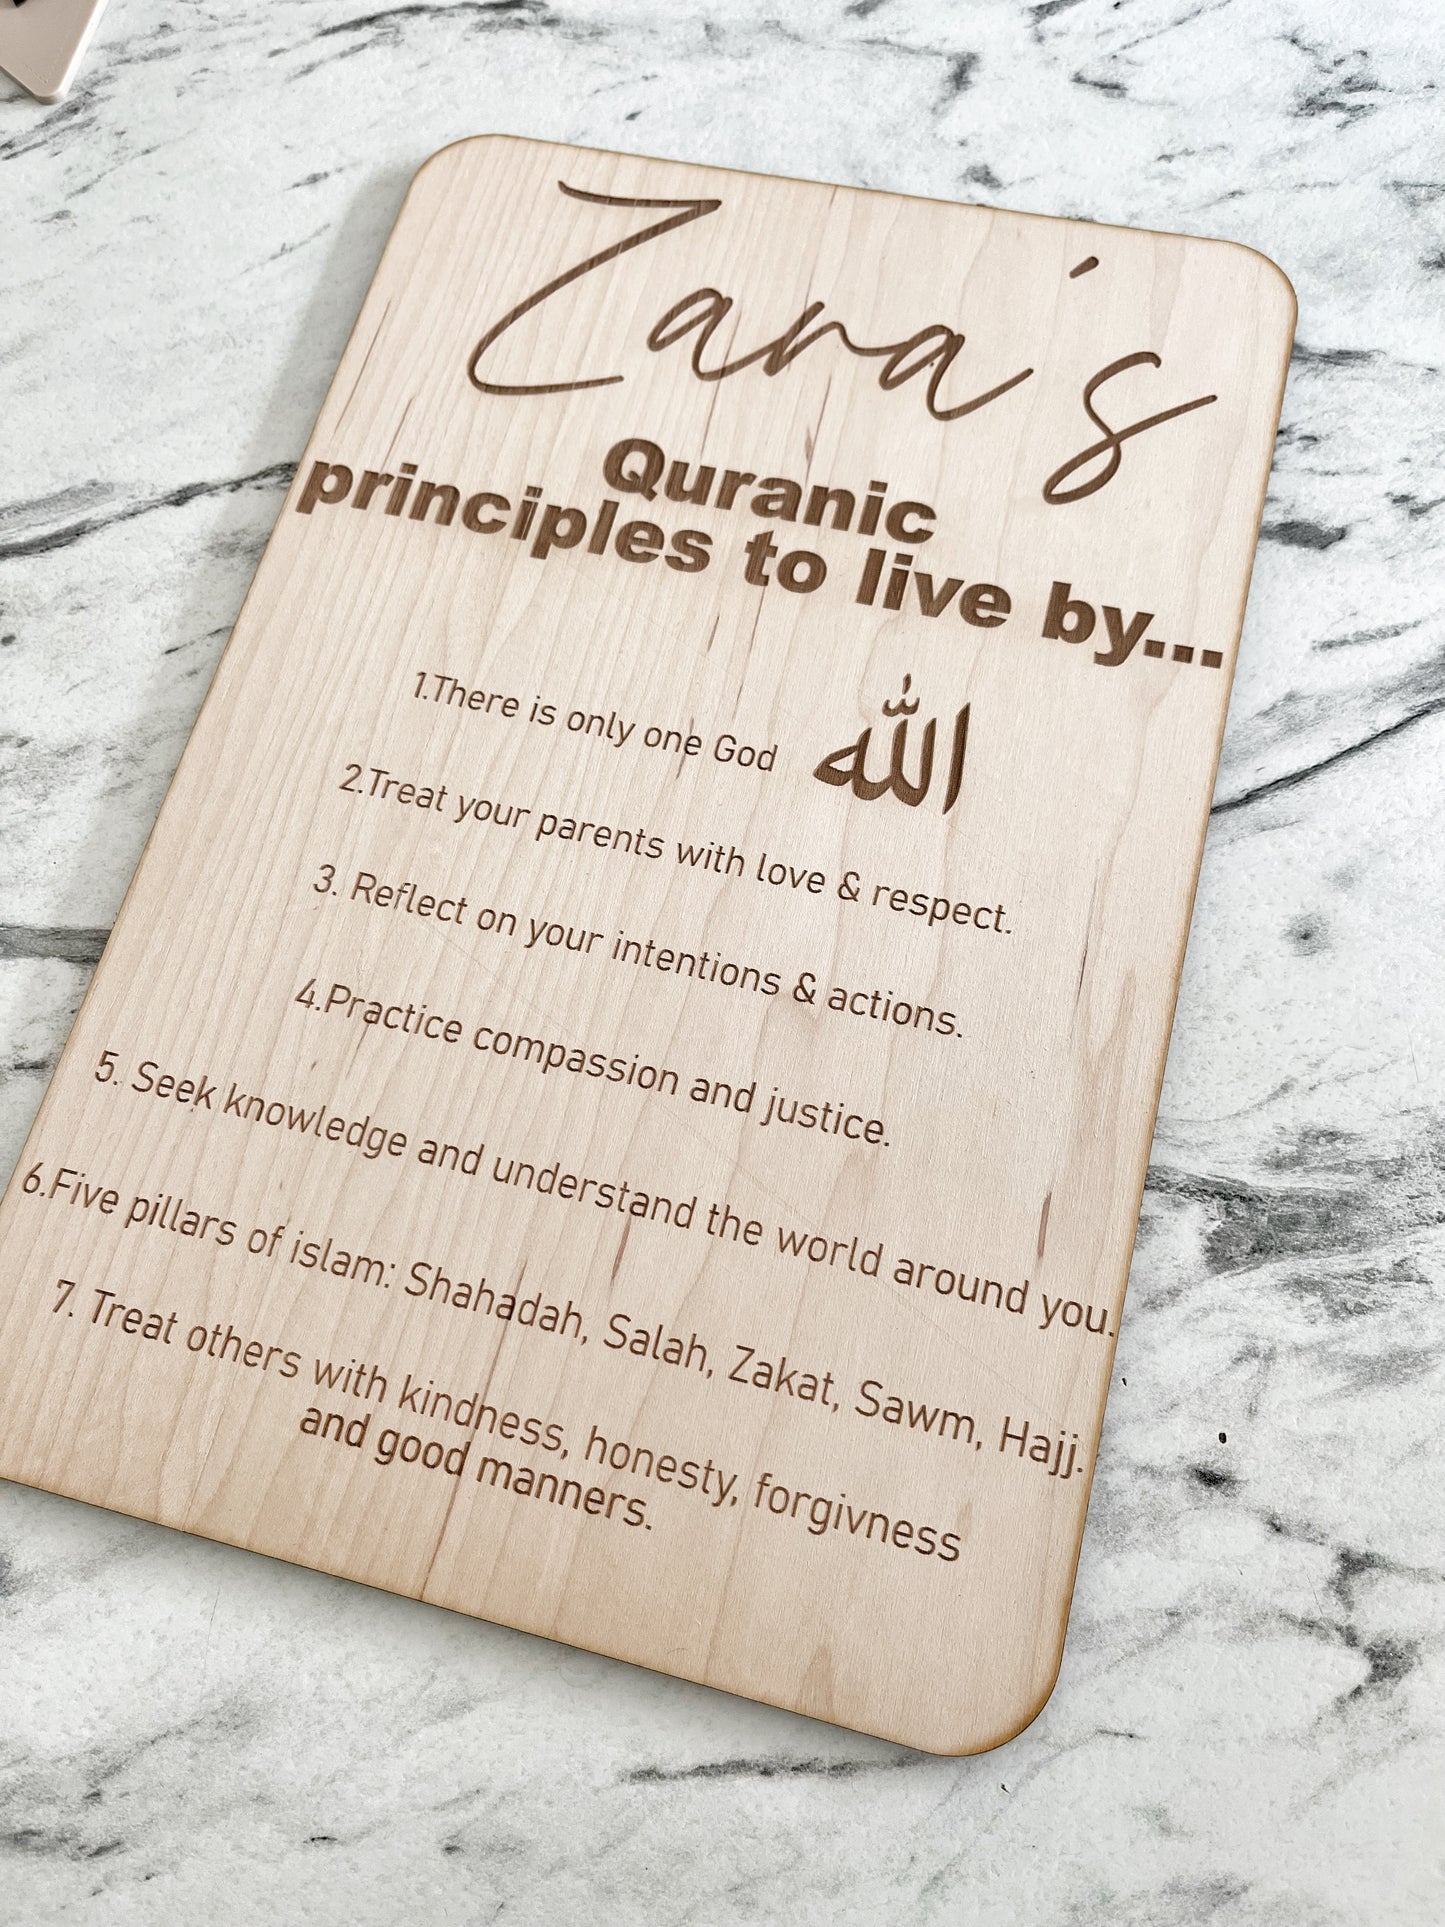 Zara's
Quranic
principles to live by...
1.There is only one God الله
2.Treat your parents with love & respect.
3. Reflect on your intentions & actions.
4.Practice compassion and justice.
5. Seek knowledge and understand the world around you.
6.Five pillars of islam: Shahadah, Salah, Zakat, Sawm, Hajj.
7. Treat others with kindness, honesty, forgivness
and good manners.